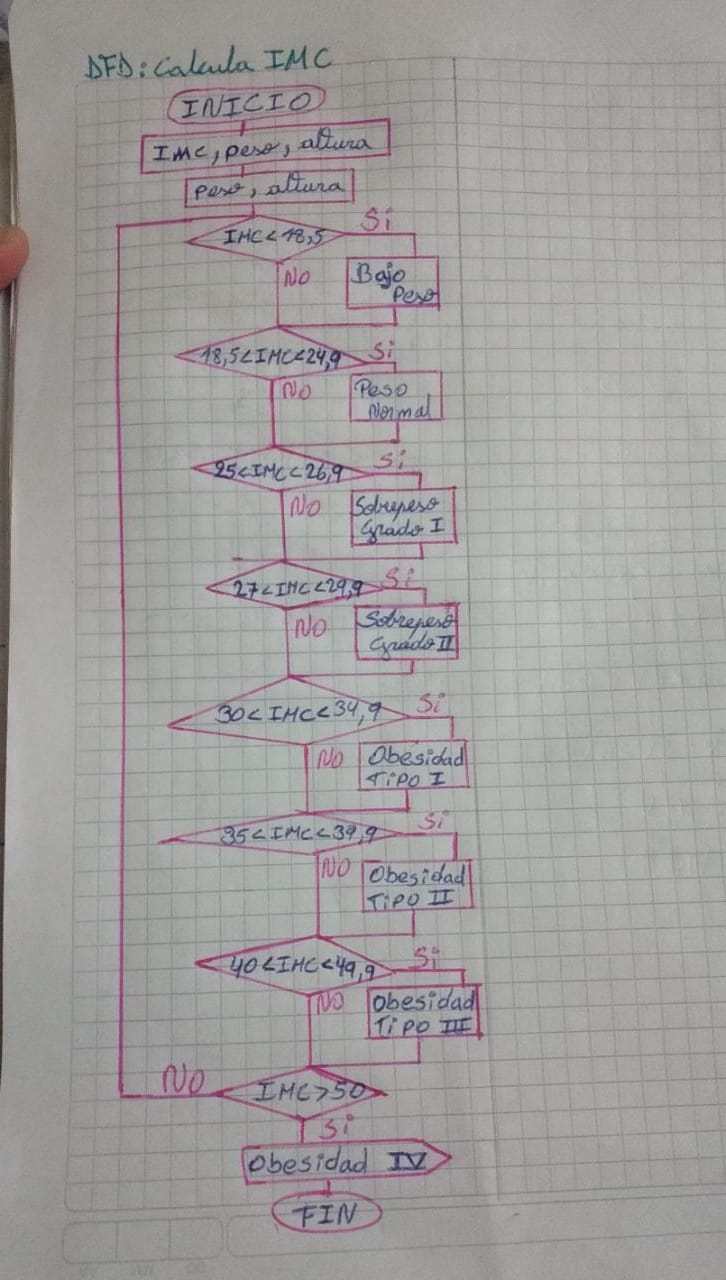 DFD: Calcula IMC
INICIO
Imc, peso, altura
peso, altura
IMC<18,5
Si
No
Bajo
Peso
18,5<IMC<24,9
Si
No
Peso
Normal
25<IMC<26,9
Si
No
Sobrepeso
Grado I
27<IMC<29,9
Si
No
Sobrepeso
Grado II
30<IMC<34,9
Si
No
Obesidad
Tipo I
35<IMC<39,9
Si
NO
Obesidad
Tipo II
40<IMC<49,9
Si
NO
Obesidad
Tipo III
NO
IMC>50
Si
Obesidad IV
FIN